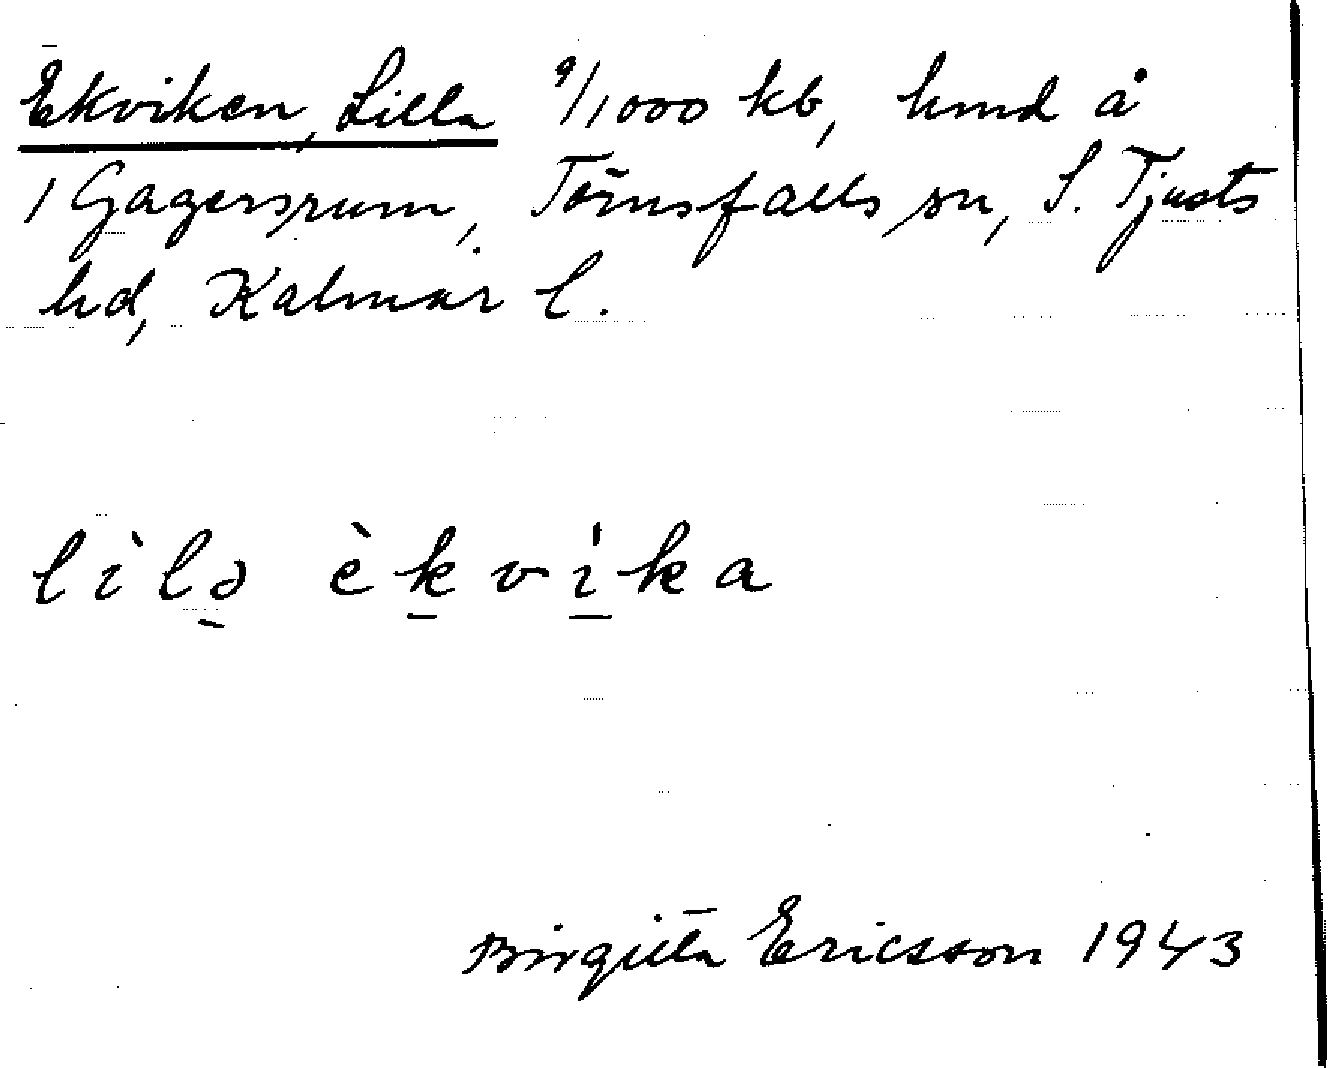 Ekviken, Lilla 9/1000 kb, hmd å
1 Gagersrum, Törnsfalls sn, S. Tjusts
hd, Kalmar l.
lìlə èkvíka
Birgitta Ericsson 1943